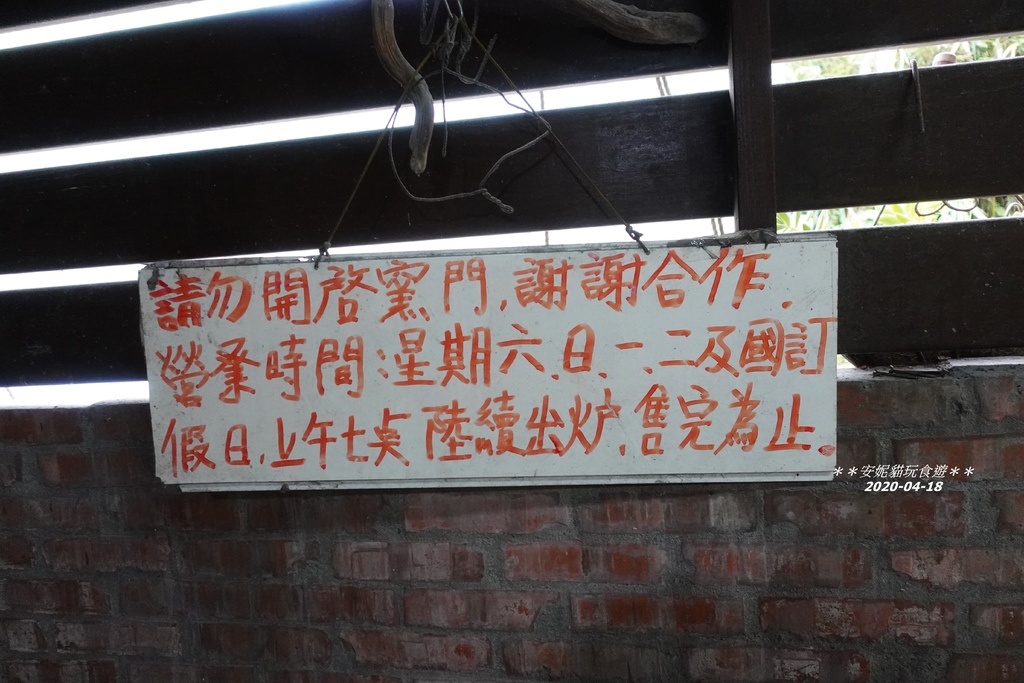 請勿開啓窯門,謝謝合作.
營業時間:星期六.日.一.二及國訂
假日,上午七点陸續出炉,售完為止。
**安妮貓玩食遊**
2020-04-18